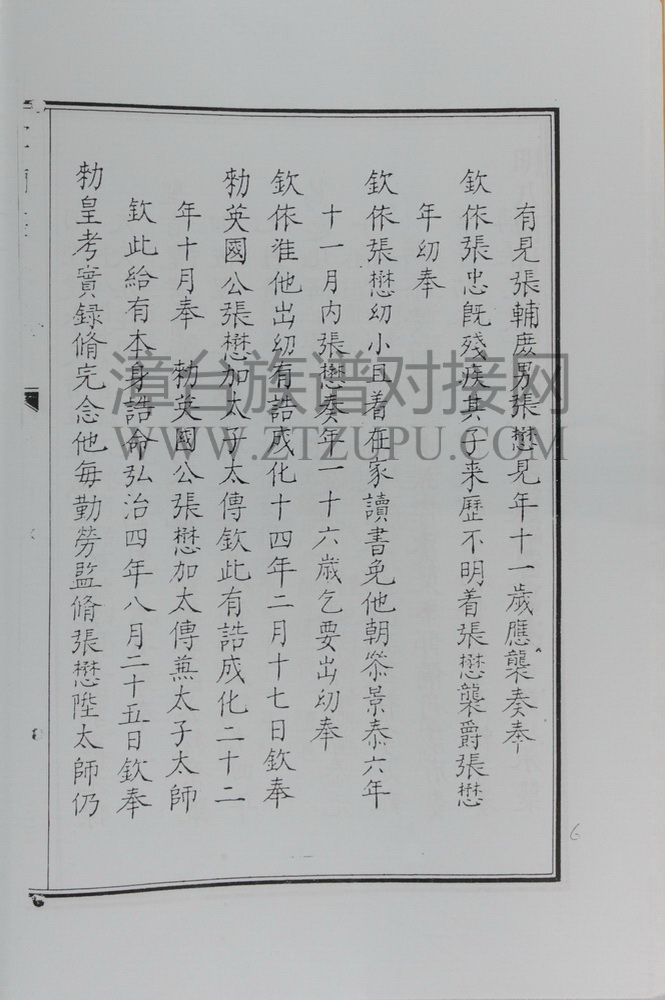 有見張輔庻男張懋見年十一歲應襲奏奉
欽依張忠旣殘疾其子来歷不明着張懋襲爵張懋
年幼奉
欽依張懋幼小且着在家讀書免他朝叅景泰六年
十一月內張懋奏年一十六歲乞要出幼奉
欽依准他出幼有誥成化十四年二月十七日欽奉
勑英國公張懋加太子太傳欽此有誥成化二十二
年十月奉　勑英國公張懋加太傳兼太子太師
欽此給有本身誥命弘治四年八月二十五日欽奉
勑皇考實録脩完念他毎勤勞監脩張懋陞太師仍
漳台族谱对接网
WWW.ZTZUPU.COM
6